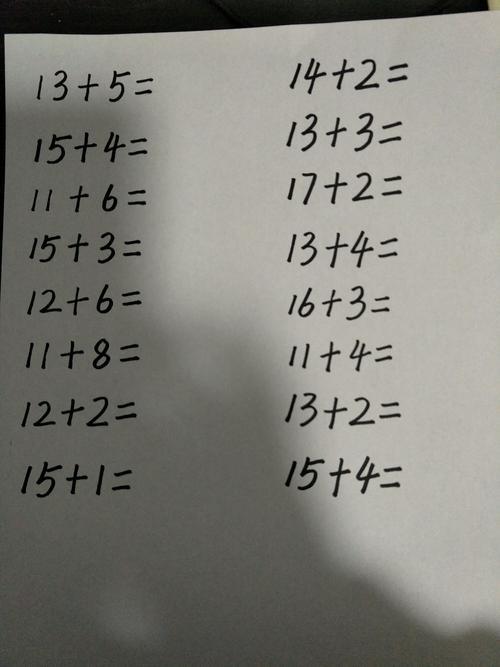 13+5=
15+4=
11+6=
15+3=
12+6=
11+8=
12+2=
15+1=
14+2=
13+3=
17+2=
13+4=
16+3=
11+4=
13+2=
15+4=